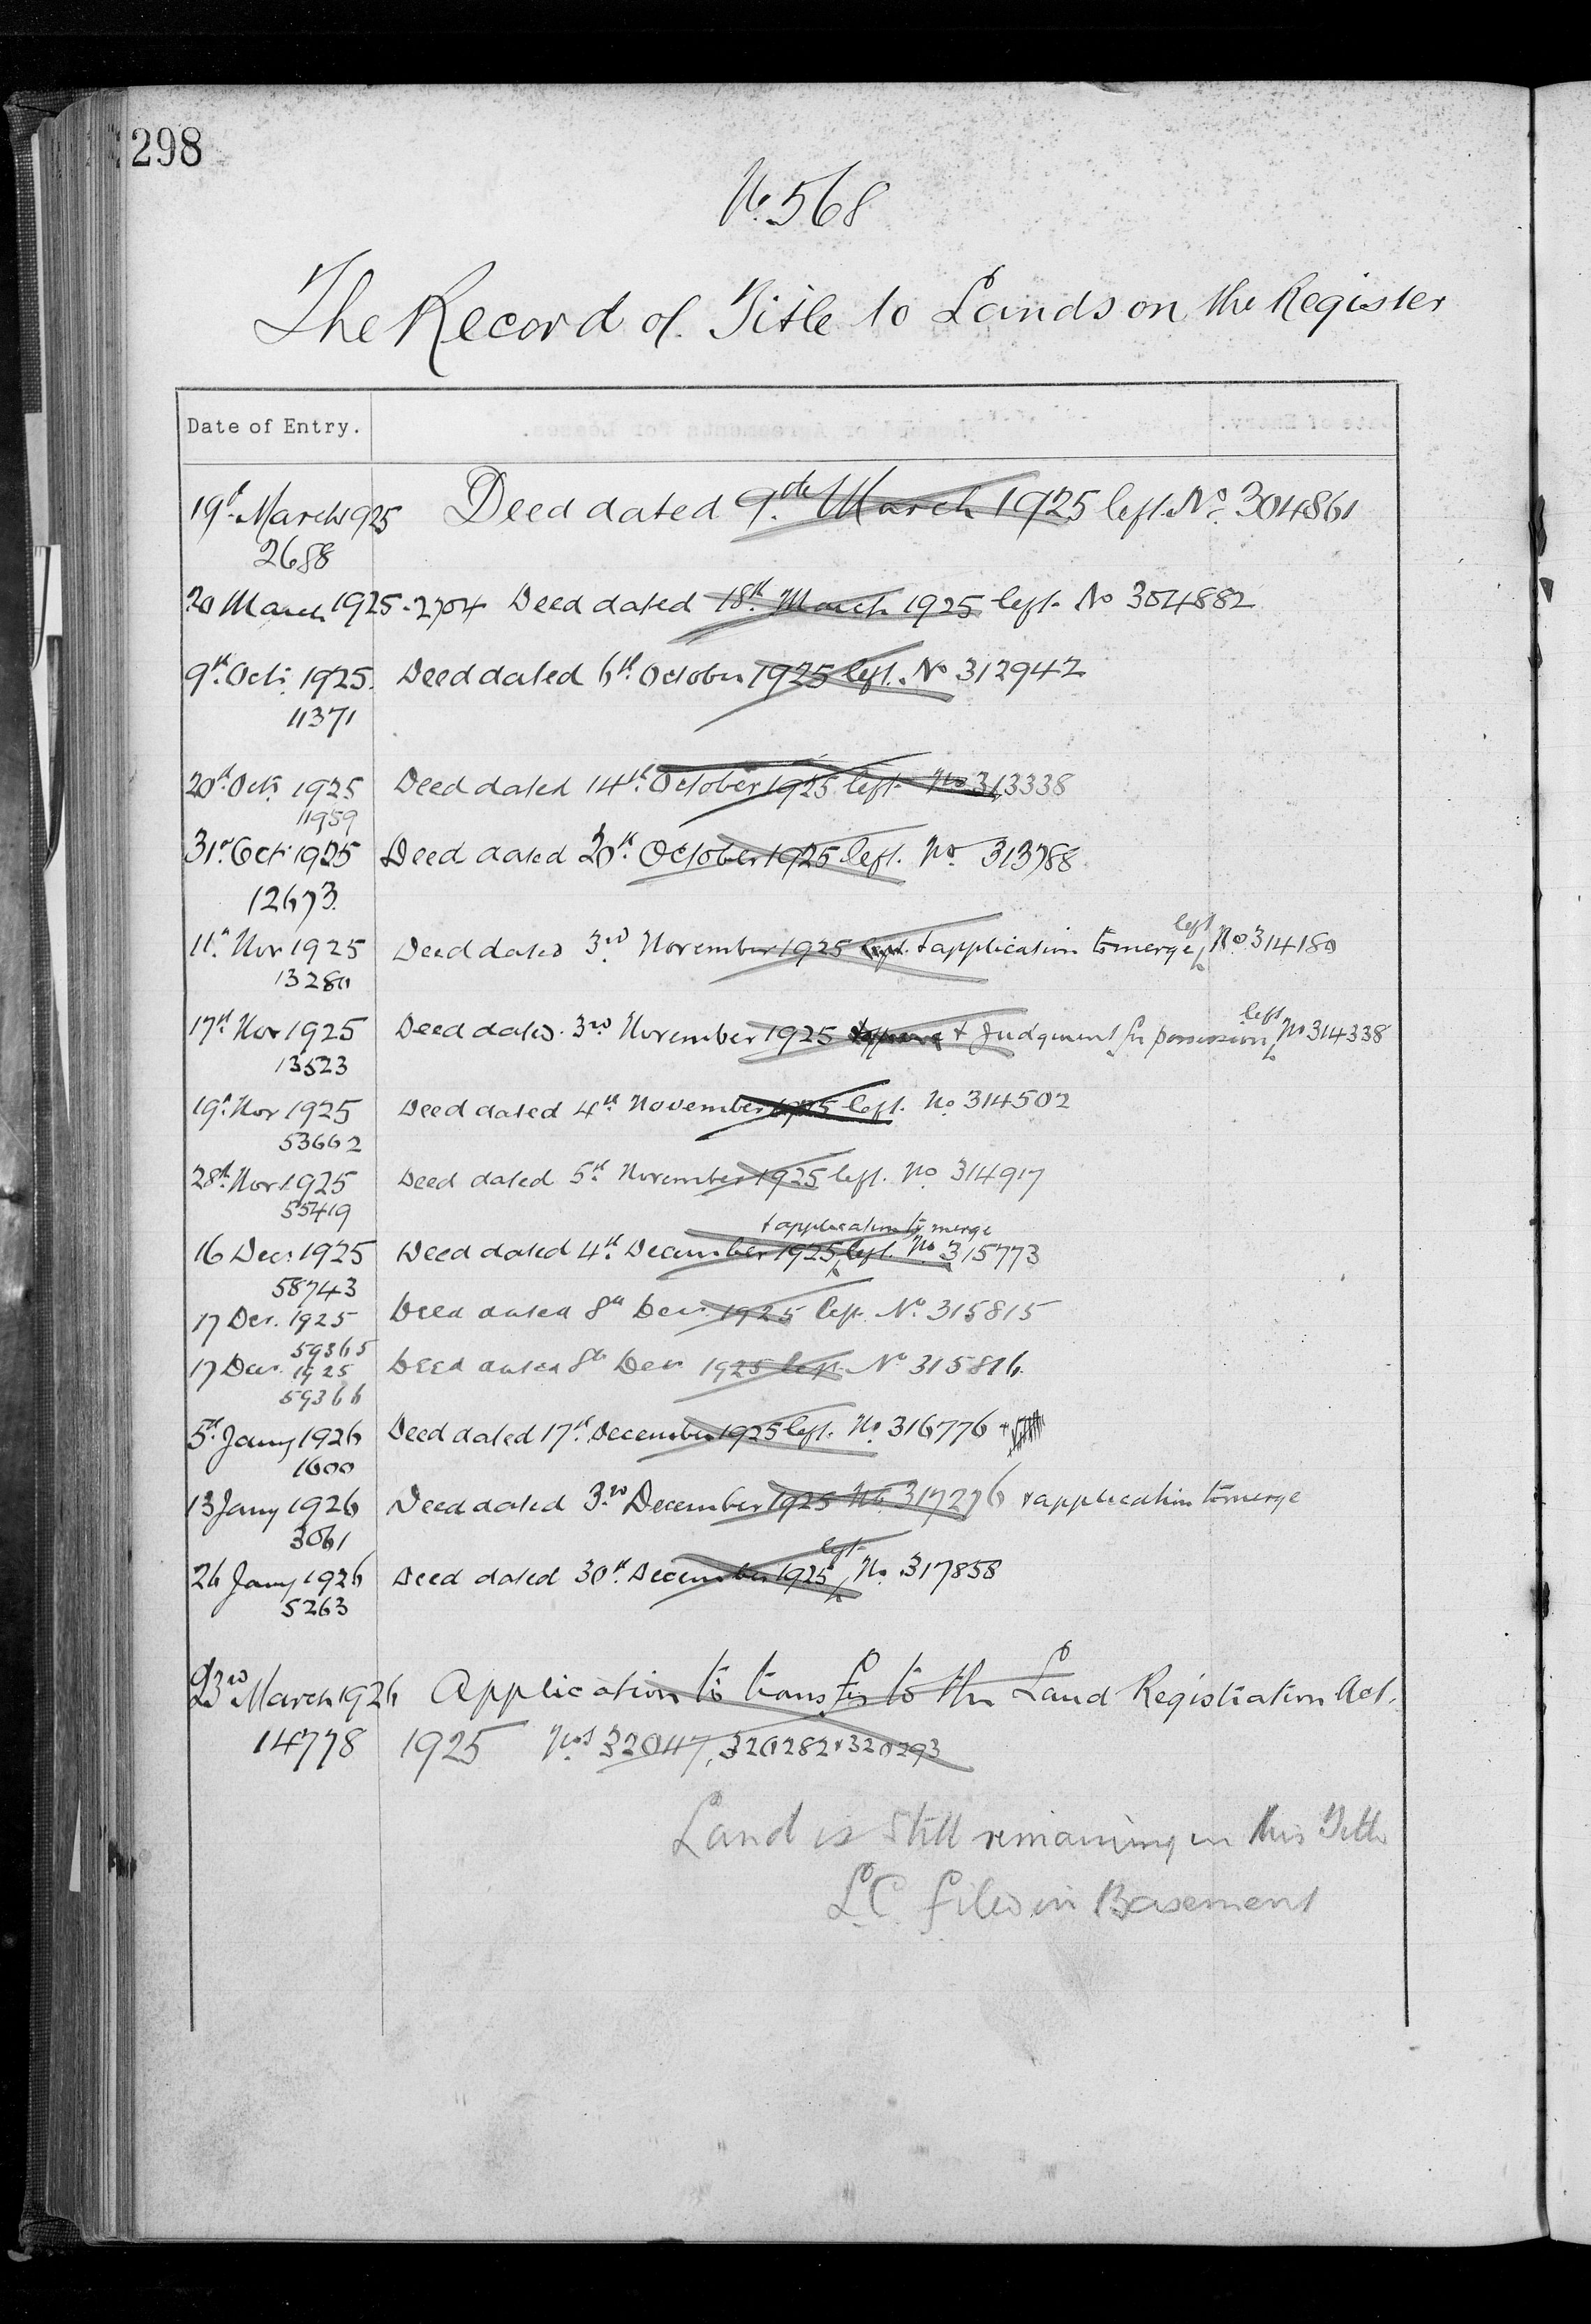 298
No. 568
The Record of Title to Lands on the Register
Date of Entry.
19th March 1925 Deed dated 9th March 1925 left. No. 304861
2688
20 March 1925 - 2704 Deed dated 18th March 1925 left - No 304882
9th Oct: 1925. Deed dated 6th October 1925 left. No 312942
11371
20th Oct: 1925 Deed dated 14th October 1925 left - No 313338
11959
31st Oct: 1925 Deed dated 20th October 1925 left. No. 313788
12673
left
11th Nov 1925 Deed dated 3rd November 1925 & application to merge No. 314180
13280
left
17th Nov 1925 Deed dated 3rd November 1925 & Judgment for possession No 314338
13523
19th Nov 1925 Deed dated 4th November 1925 left. No 314502
53662
28th Nov 1925 Deed dated 5th November 1925 left. No 314917
55419
& application to merge
16 Dec: 1925 Deed dated 4th December 1925 left. No 315773
58743
17 Dec. 1925 Deed dated 8th Dec. 1925 left No. 315815
59365
17 Dec. 1925 Deed dated 8th Dec 1925 left No 315816.
59366
5th Jany 1926 Deed dated 17th December 1925 left. No. 316776 +
1600
13 Jany 1926 Deed dated 3rd December 1925 No. 317276 & application to merge
3061
left
26 Jany 1926 Deed dated 30th December 1925 No. 317858
5263
23rd March 1926 Application to transfer to the Land Registration Act.
14778 1925 Nos 32047, 320282 & 320293
Land is still remaining in this Title
L.C. filed in Basement